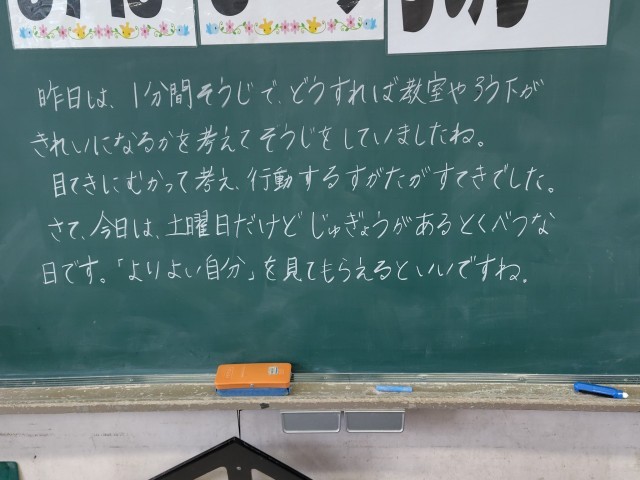 昨日は、1分間そうじで、どうすれば教室やろう下が
きれいになるかを考えてそうじをしていましたね。
目てきにむかって考え、行動するすがたがすてきでした。
さて、今日は、土曜日だけどじゅぎょうがあるとくべつな
日です。「よりよい自分」を見てもらえるといいですね。